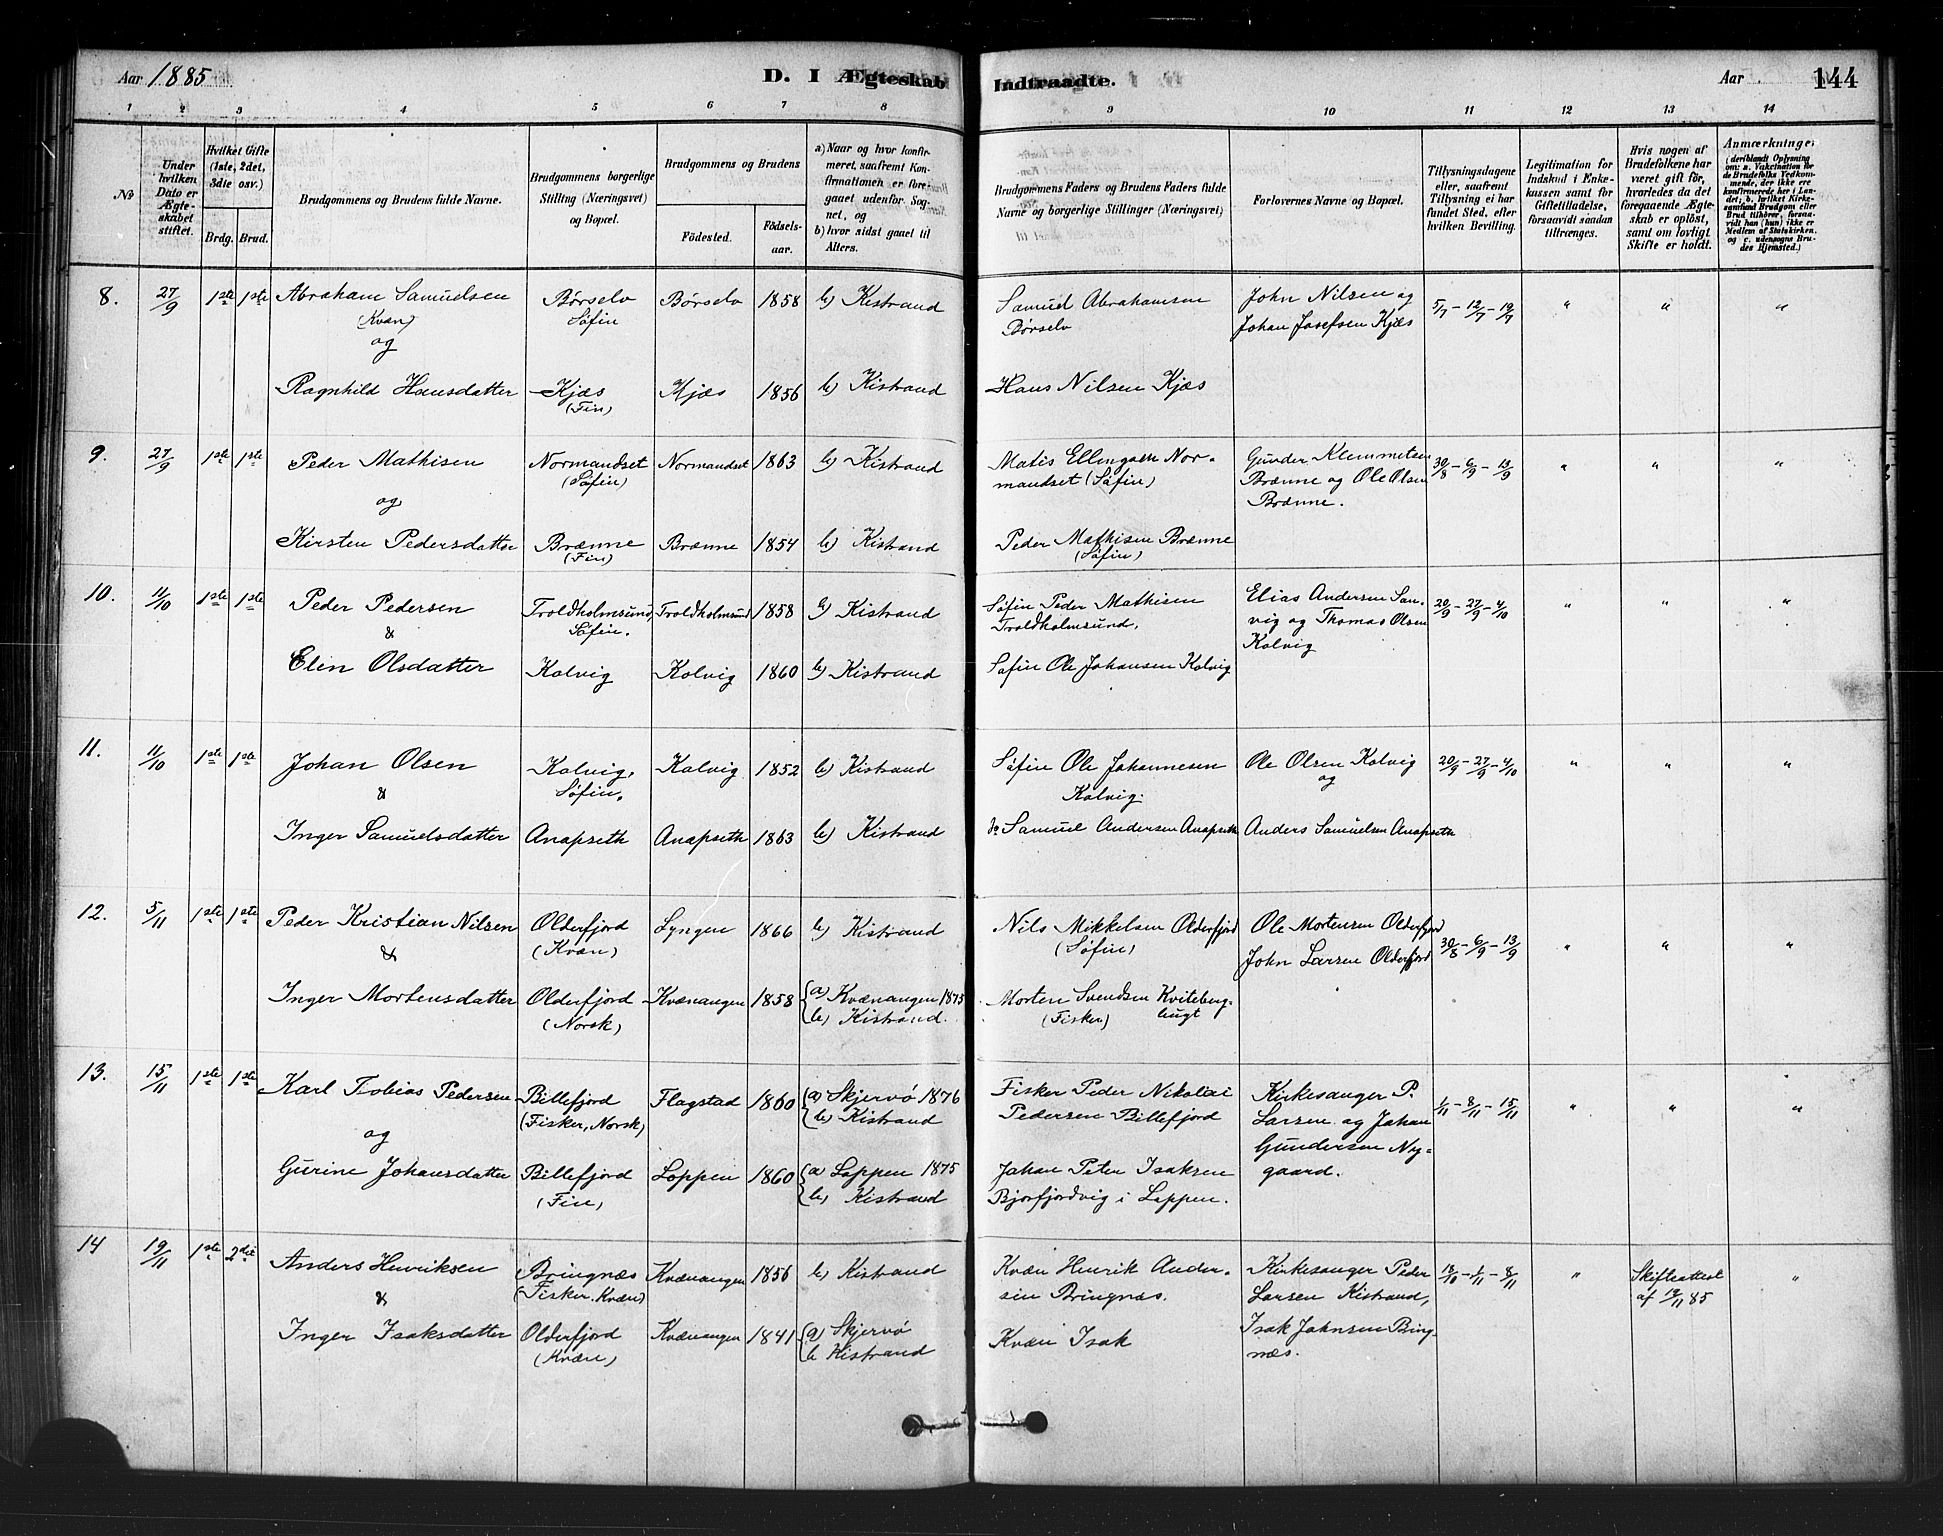 Aar 1885
D. I Ægteskab Indtraadte.
Aar
144
1 2 3 4 5 6 7 8 9 10 11 12 13 14
No
Under hvilken Dato er Ægteskabet stiftet.
Hvilket Gifte (1ste, 2det, 3die osv.)
Brdg. Brud.
Brudgommens og Brudens fulde Navne.
Brudgommens borgerlige Stilling (Næringsvei) og Bopæl.
Brudgommens og Brudens
Födested. Födselsaar.
a) Naar og hvor konfirmeret, saafremt Konfirmationen er foregaaet udenfor Sognet, og
b) hvor sidst gaaet til Alters.
Brudgommens Faders og Brudens Faders fulde Navne og borgerlige Stillinger (Næringsvei)
Forlovernes Navne og Bopæl.
Tillysningsdagene eller, saafremt Tillysning ei har fundet Sted, efter hvilken Bevilling.
Legitimation for Indskud i Enkekassen samt for Giftetilladelse, forsaavidt saadan tiltrænges.
Hvis nogen af Brudefolkene har været gift för, hvorledes da det foregaaende Ægteskab er oplöst, samt om lovligt Skifte er holdt.
Anmærkninger (deriblandt Oplysning om: a. Vakcination for de Brudefolks Vedkommende, der ikke ere konfirmerede her i Landet; b. hvilket Kirkesamfund Brudgom eller Brud tilhörer, forsaavidt han (hun) ikke er Medlem af Statskirken, og c. udensogns Brudes Hjemsted.)
8. 27/9 1ste 1ste Abraham Samuelsen Børselv Børselv 1858 b) Kistrand Samuel Abrahamsen John Nilsen og 5/7 - 12/7 - 19/7 " " "
(Kvæn) Søfin Børselv Johan Josefsen Kjæs
og
Ragnhild Hansdatter Kjæs Kjæs 1856 b) Kistrand Hans Nilsen Kjæs
(Fin)
9. 27/9 1ste 1ste Peder Mathisen Normandset Normandset 1863 b) Kistrand Matis Ellingsen Nor- Gunder Klemmetsen 30/8 - 6/9 - 13/9 " " "
(Søfin) mandset (Søfin) Brænne og Ole Olsen
og Brænne.
Kirsten Pedersdatter Brænne Brænne 1854 b) Kistrand Peder Mathisen Brænne
(Fin) (Søfin)
10. 11/10 1ste 1ste Peder Pedersen Troldholmsund, Troldholmsund 1858 b) Kistrand Søfin Peder Mathisen Elias Andersen San- 20/9 - 27/9 - 4/10 " " "
& Søfin. Troldholmsund, vig og Thomas Olsen
Elen Olsdatter Kolvig Kolvig 1860 b) Kistrand Søfin Ole Johansen Kolvig Kolvig
11. 11/10 1ste 1ste Johan Olsen Kolvig, Kolvig 1852 b) Kistrand Søfin Ole Johannesen Ole Olsen Kolvig 20/9 - 27/9 - 4/10 " " "
& Søfin. Kolvig. og
Inger Samuelsdatter Anapseth Anapseth 1863 b) Kistrand do Samuel Andersen Anapseth Anders Samuelsen Anapseth
12. 5/11 1ste 1ste Peder Kristian Nilsen Olderfjord Lyngen 1866 b) Kistrand Nils Mikkelsen Olderfjord Ole Mortensen Olderfjord 30/8 - 6/9 - 13/9 " " "
& (Kvæn) (Søfin) John Larsen Olderfjord
Inger Mortensdatter Olderfjord Kvænangen 1858 a) Kvænangen 1875 Morten Svendsen Kviteberg-
(Norsk) b) Kistrand. (Fisker) bugt
13. 15/11 1ste 1ste Karl Tobias Pedersen Billefjord Flagstad 1860 a) Skjervø 1876 Fisker Peder Nikolai Kirkesanger P. 1/11 - 8/11 - 15/11 " " "
(Fisker, Norsk) b) Kistrand Pedersen Billefjord Larsen og Johan
og Gundersen Ny-
Gurine Johansdatter Billefjord Loppen 1860 a) Loppen 1875 Johan Peter Isaksen gaard.
(Fin) b) Kistrand Bjorfjordvig i Loppen.
14 19/11 1ste 2det Anders Henriksen Bringnæs Kvænangen 1856 b) Kistrand Kvæn Henrik Ander- Kirkesanger Peder 18/10 - 1/11 - 8/11 " Skifteattest "
& (Fisker. Kvæn) sen Bringnæs. Larsen Kistrand, af 19/11 85
Inger Isaksdatter Olderfjord Kvænangen 1841 a) Skjervø Kvæn Isak Isak Johnsen Bring-
(Kvæn) b Kistrand næs.